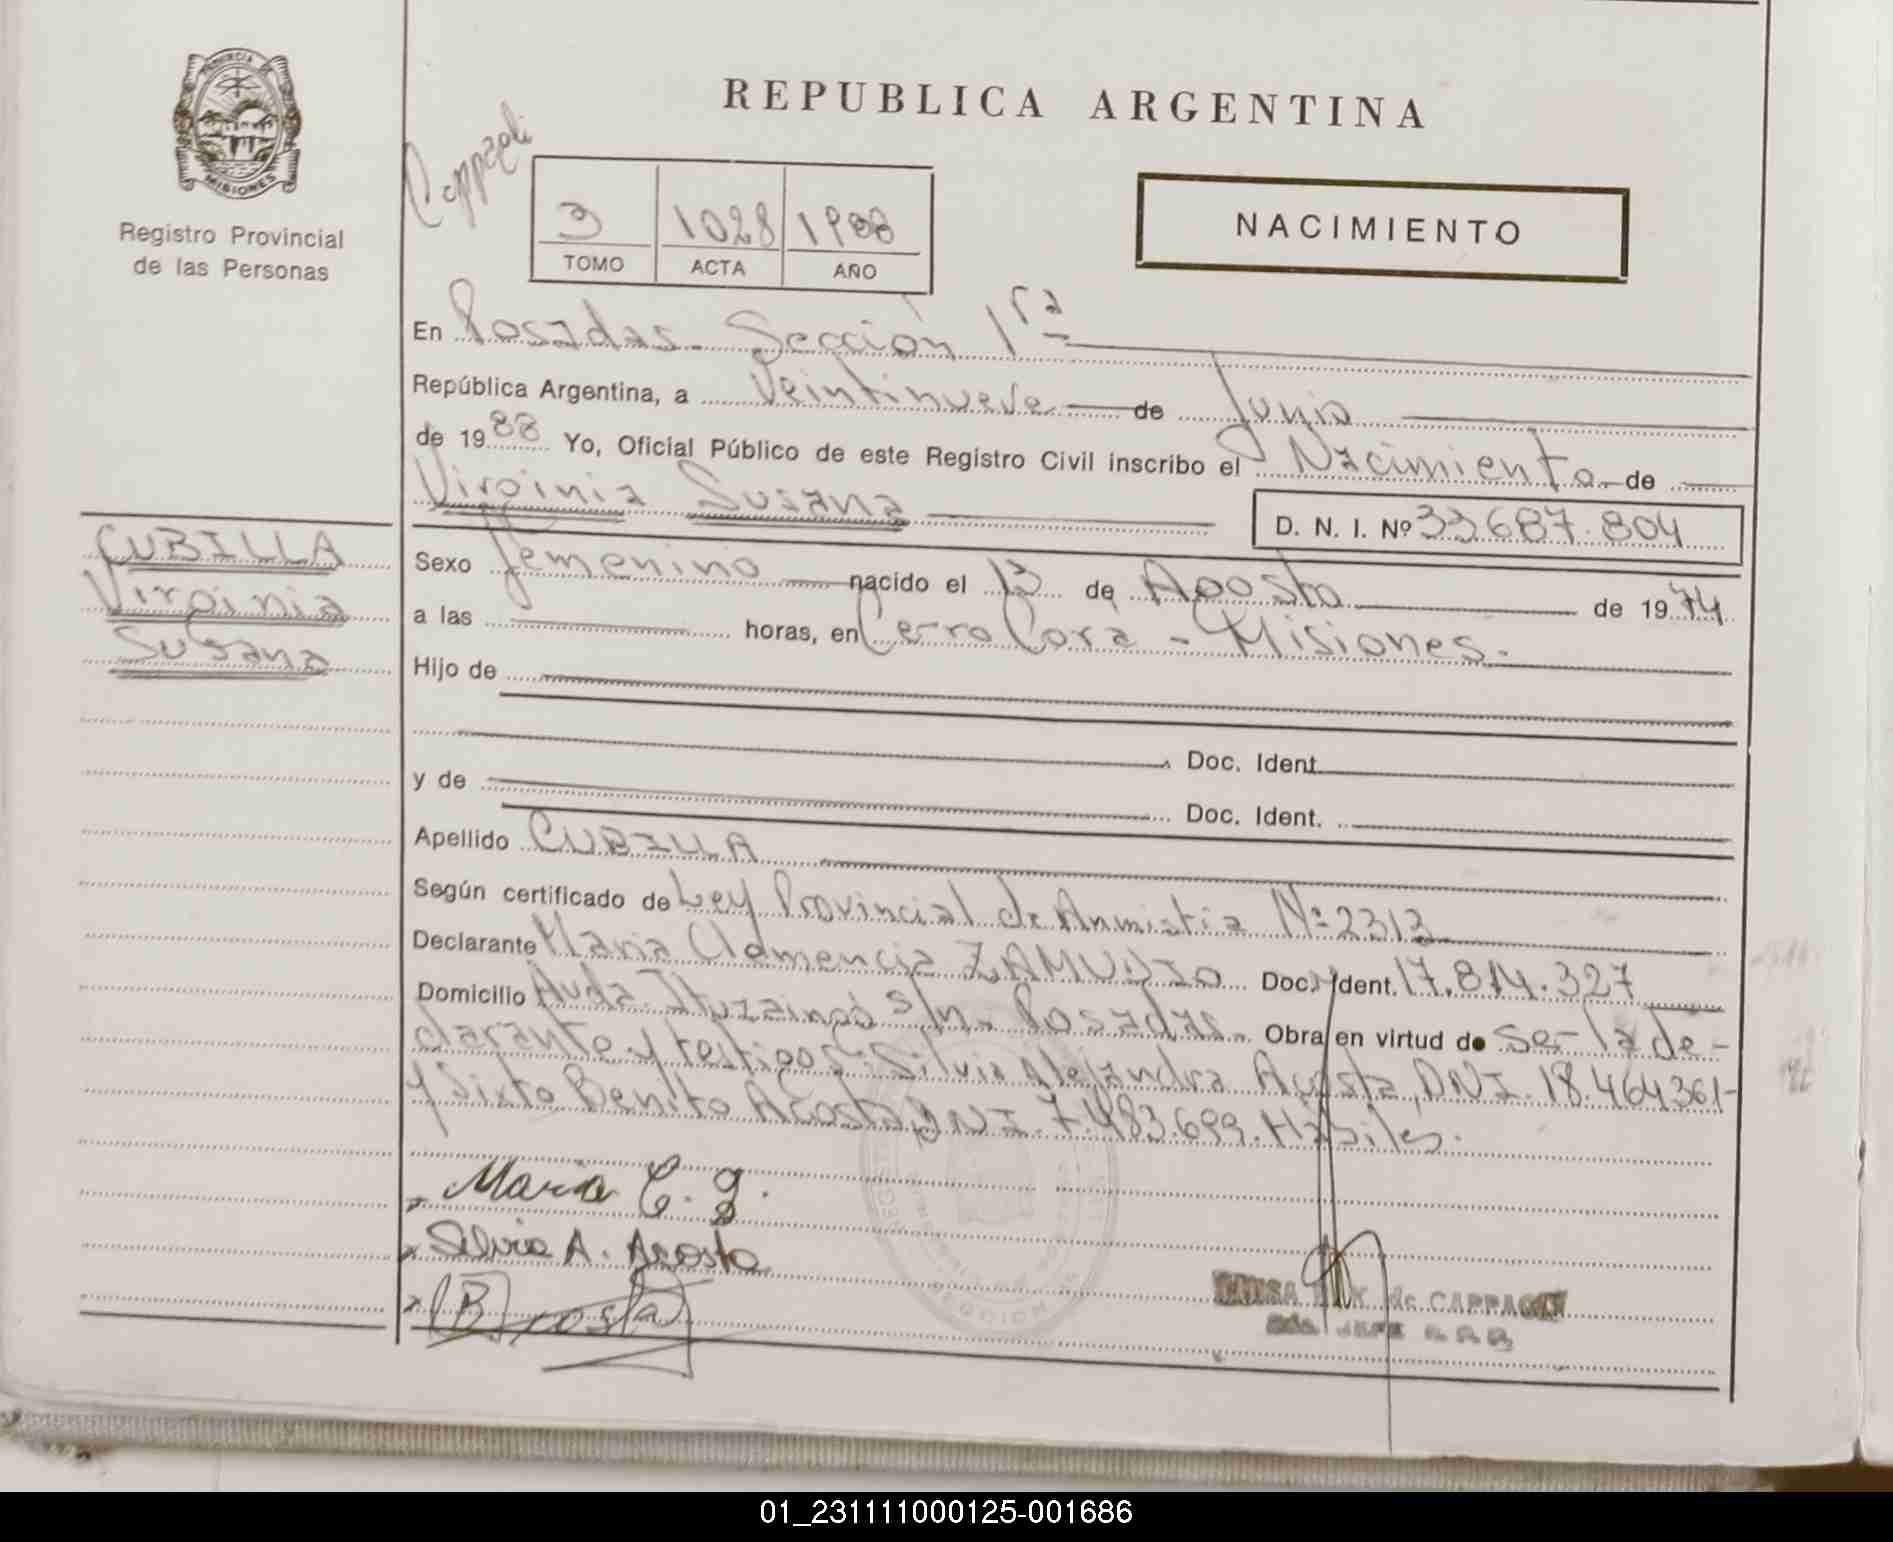 PROVINCIA DE
MISIONES
Registro Provincial
de las Personas
REPUBLICA ARGENTINA
NACIMIENTO
3 1028 1988
TOMO ACTA AÑO
En Posadas. Sección 1ra
República Argentina, a Veintinueve de Junio
de 1988 Yo, Oficial Público de este Registro Civil inscribo el Nacimiento de
Virginia Susana D. N. I. Nº 33687.804
CUBILLA
Virginia
Susana
Sexo femenino nacido el 13 de Agosto de 1974
a las horas, en Cerro Corá - Misiones.
Hijo de
Doc. Ident.
y de Doc. Ident.
Apellido CUBILLA
Según certificado de Ley Provincial de Anmistia Nº 2313
Declarante Maria Clemencia Doc. Ident. 17.814.327
Domicilio Avda. Ituzaingó s/n. Posadas. Obra en virtud de ser la de-
clarante y testigos: Silvia Alejandra Acosta, DNI. 18.464361-
y Sixto Benito Acosta, DNI. 7.483.699. Hábiles.
Maria C.
Silvia A. Acosta
01_231111000125-001686